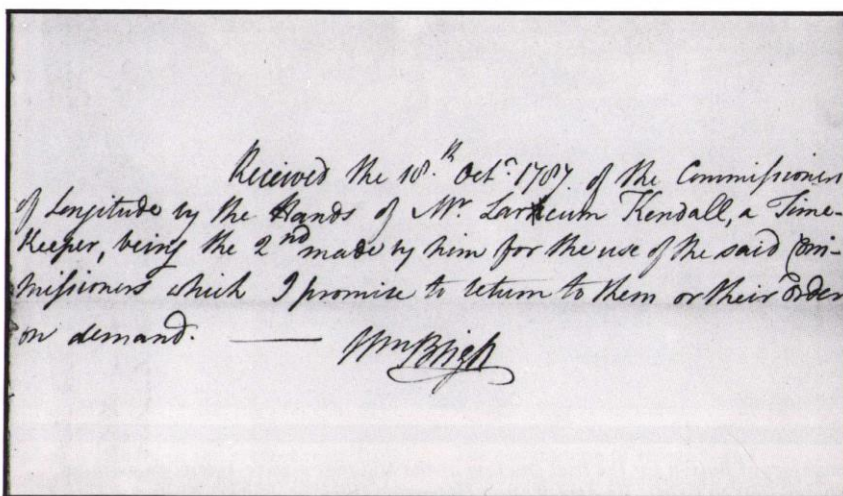 Received the 18.th Octr. 1787. of the Commissioners
of Longitude by the Hands of Mr. Larkcum Kendall, a Time-
Keeper, being the 2nd made by him for the use of the said Com-
missioners which I promise to return to them or their Order
on demand. —
Wm Bligh